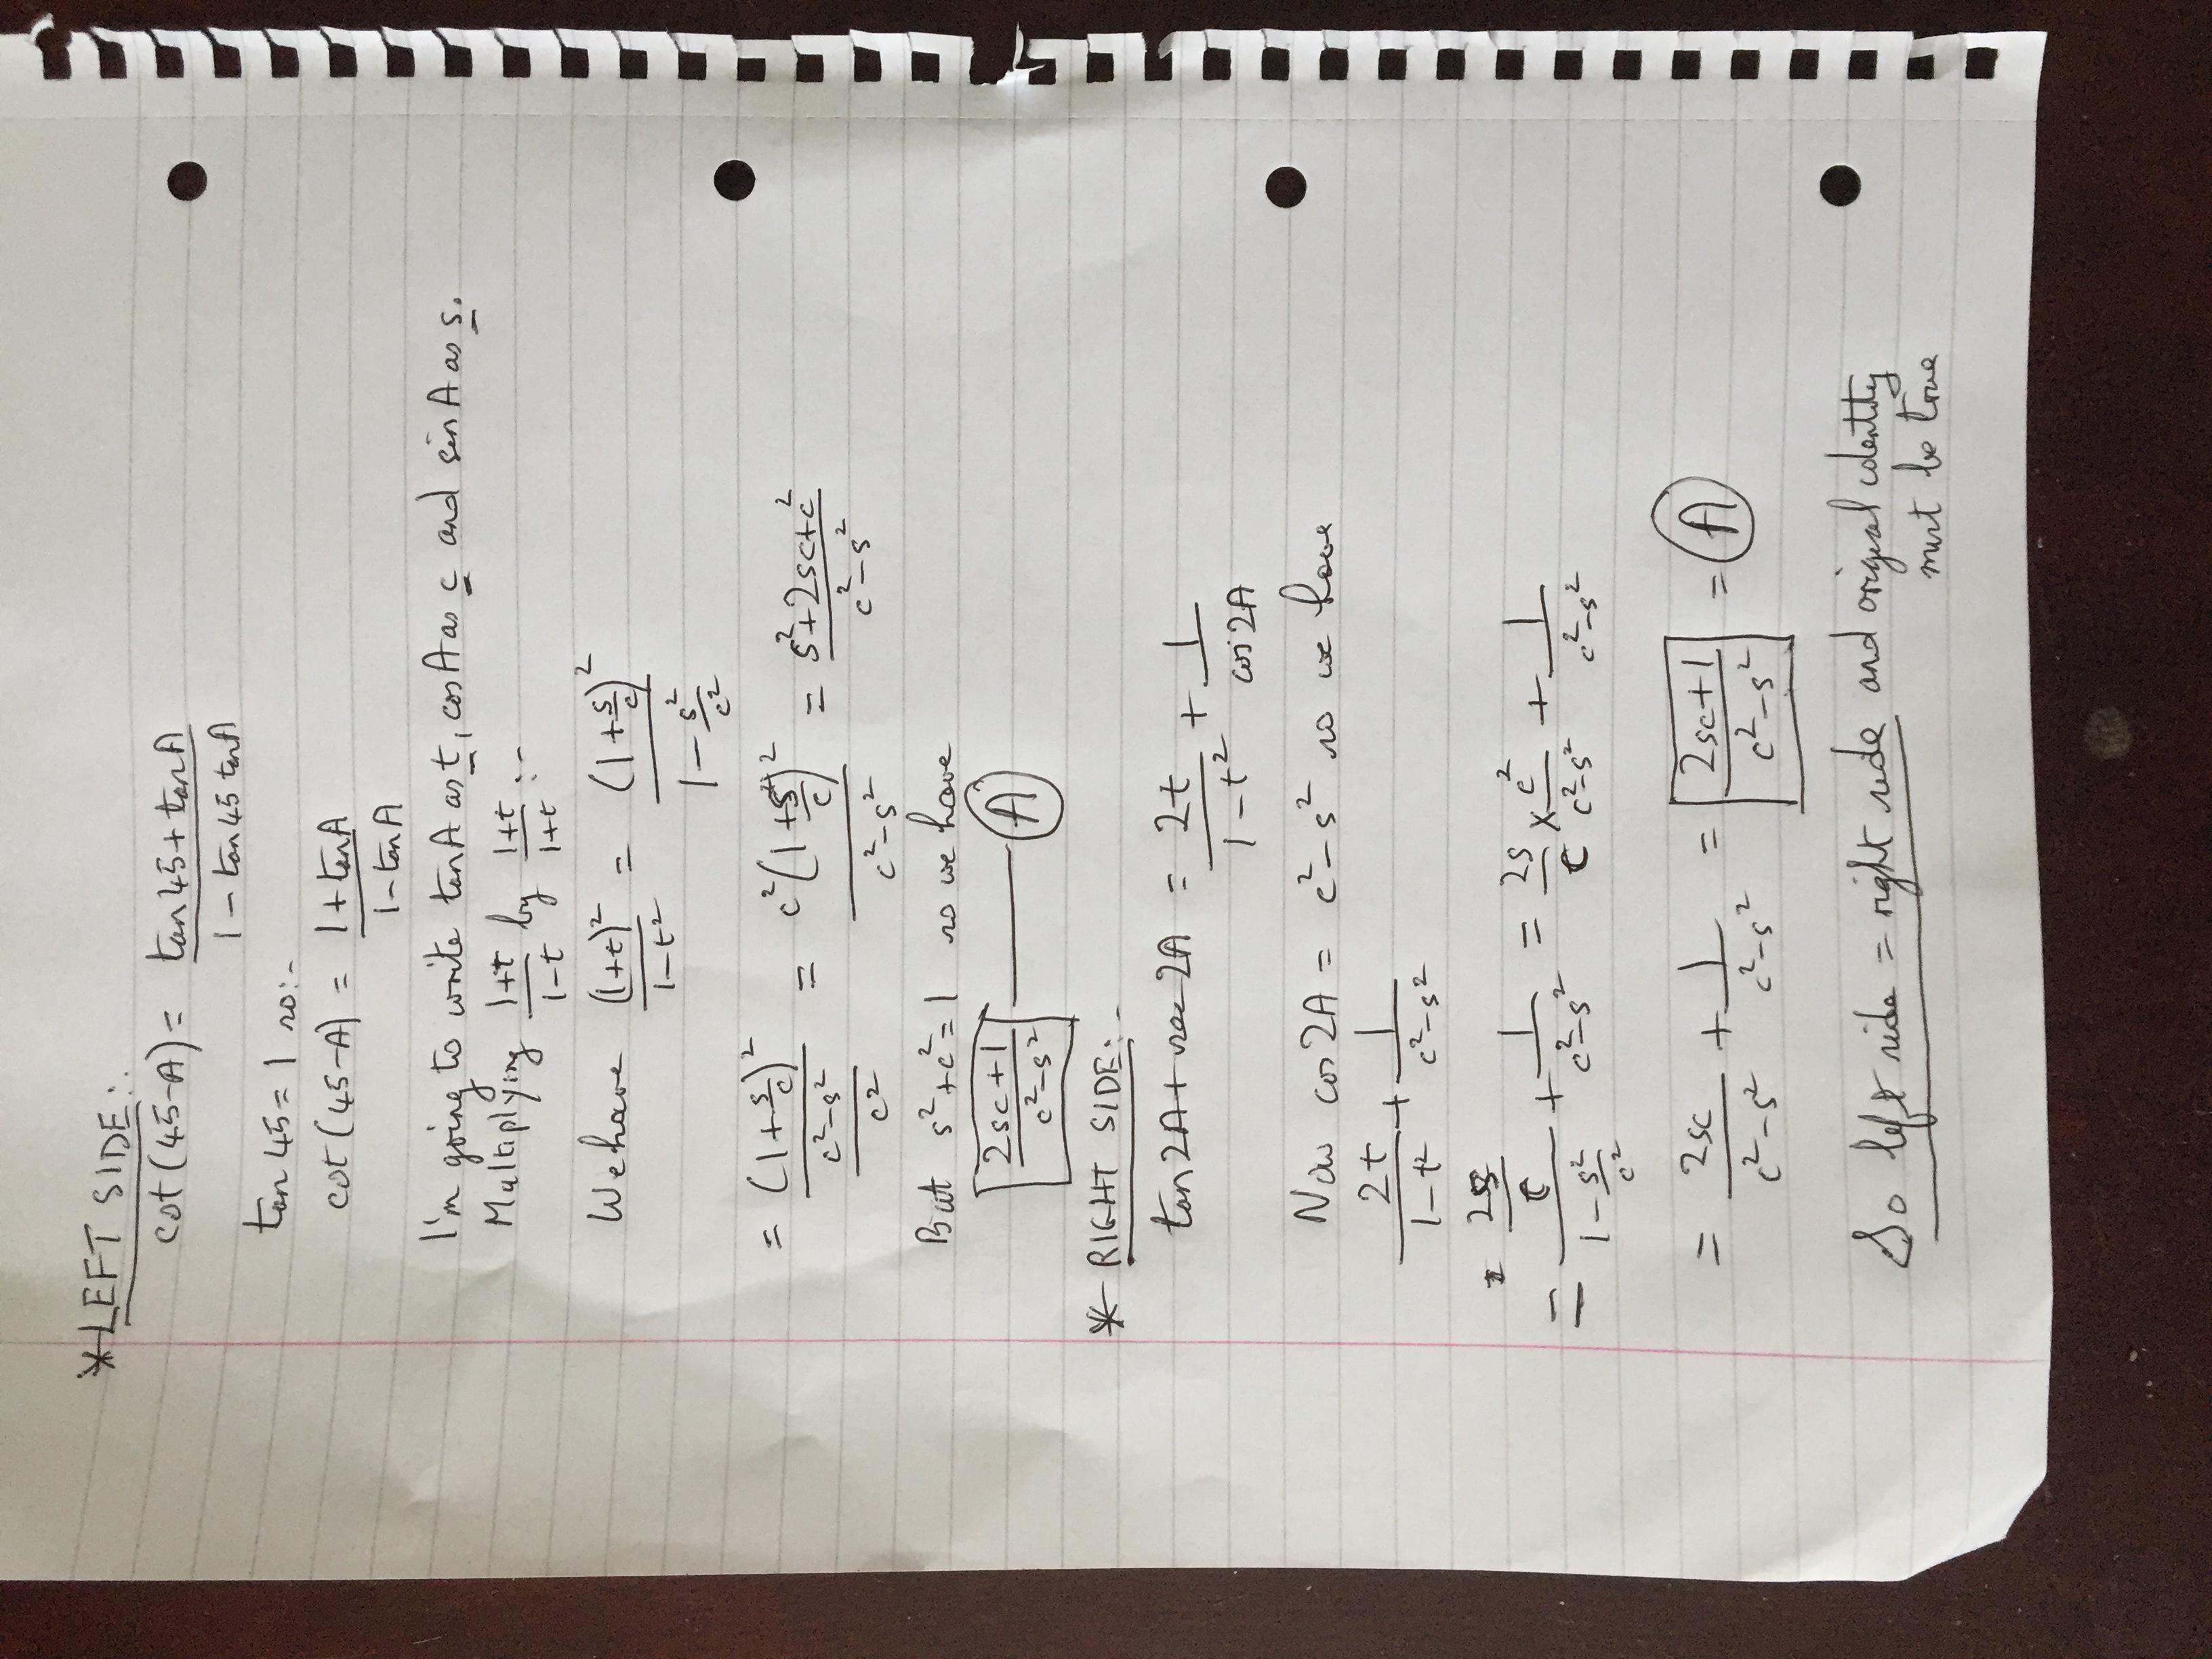 * LEFT SIDE:-
cot(45-A) = (tan45+tanA)/(1-tan45tanA)
tan45=1 so:-
cot(45-A) = (1+tanA)/(1-tanA)
I'm going to write tanA as t, cosA as c and sinA as s.
Multiplying (1+t)/(1-t) by (1+t)/(1+t) :-
We have (1+t)²/(1-t²) = (1+s/c)²/(1-s²/c²)
= (1+s/c)²/((c²-s²)/c²) = c²(1+s/c)²/(c²-s²) = (s²+2sc+c²)/(c²-s²)
But s²+c²=1 so we have
(2sc+1)/(c²-s²) —— A
* RIGHT SIDE:-
tan2A+sec2A = 2t/(1-t²) + 1/cos2A
Now cos2A = c²-s² so we have
2t/(1-t²) + 1/(c²-s²)
= (2s/c)/(1-s²/c²) + 1/(c²-s²) = 2s/c × c²/(c²-s²) + 1/(c²-s²)
= 2sc/(c²-s²) + 1/(c²-s²) = (2sc+1)/(c²-s²) = A
So left side = right side and original identity
must be true